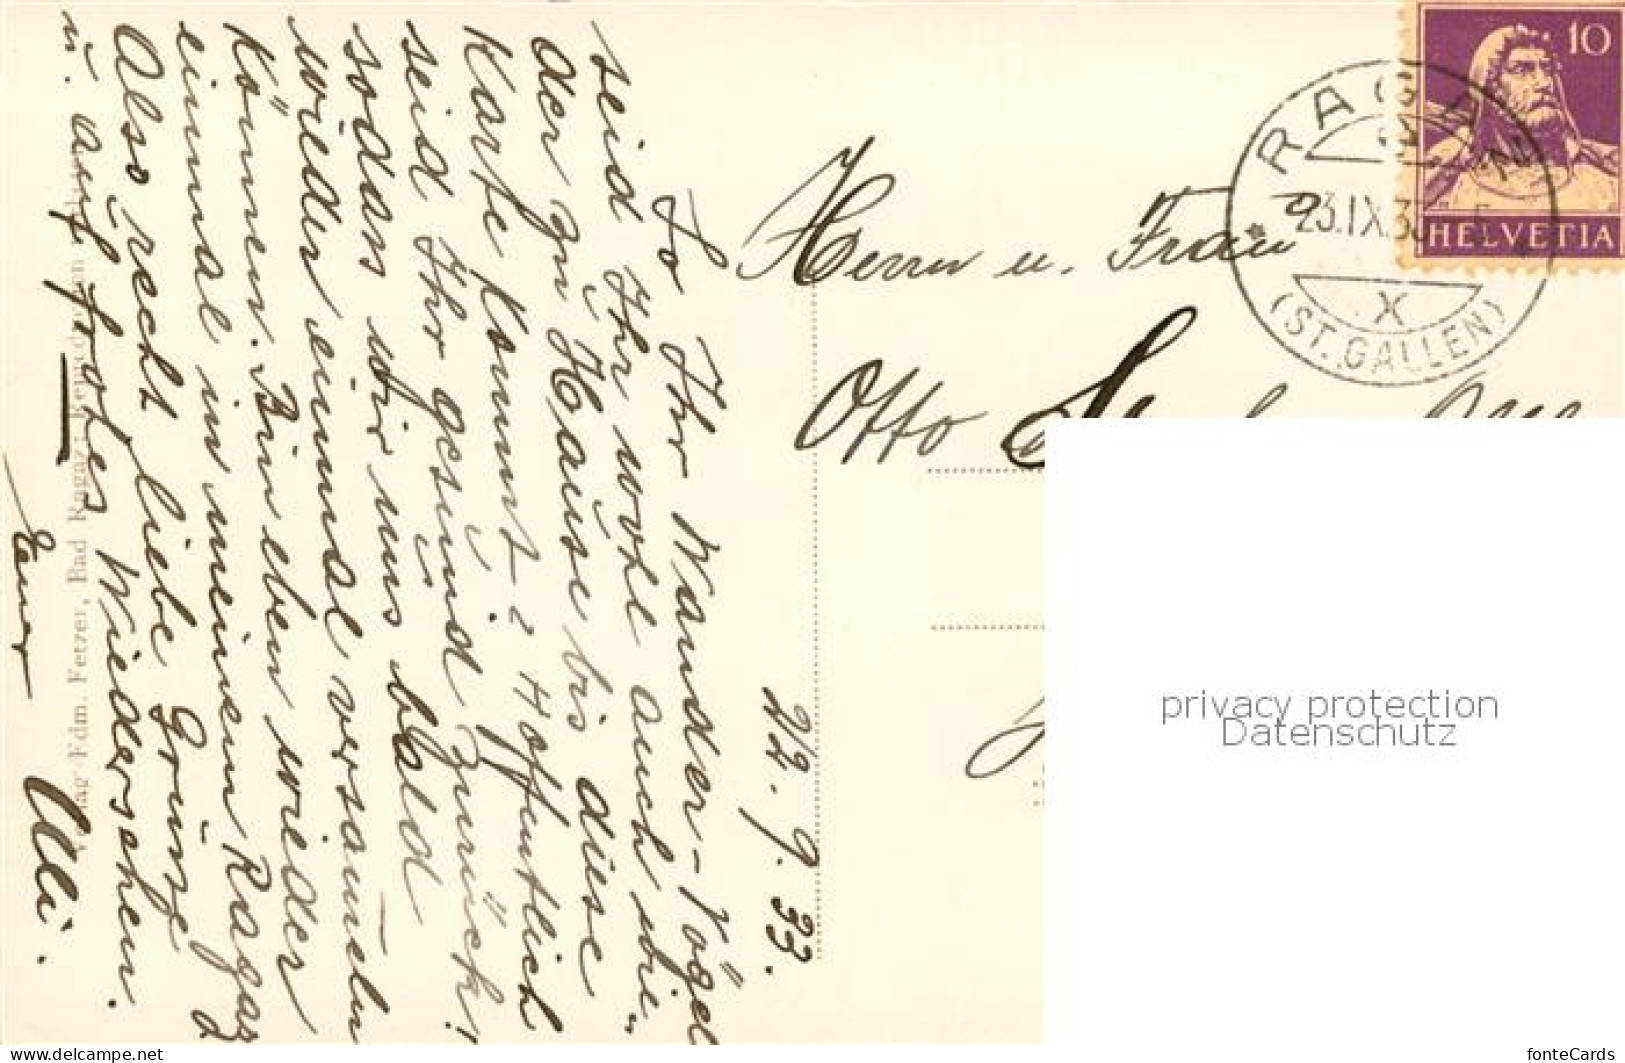 22. 9. 33.
So Ihr Wander-Vögel
seid Ihr wohl auch wie-
der zu Hause bis diese
Karte kommt? Hoffentlich
seid Ihr gesund zurück!
sodass wir uns bald
wieder einmal versammeln
können. Bin eben wieder
einmal in meinem Ragaz
Also recht liebe Grüsse
u. auf frohes Wiedersehen.
Euer Olli.
Verlag Edm. Fetzer, Bad Ragaz
Herrn u. Frau
Otto
RAGAZ
23.IX.33
X
(ST. GALLEN)
10
HELVETIA
privacy protection
Datenschutz
www.delcampe.net
fonteCards